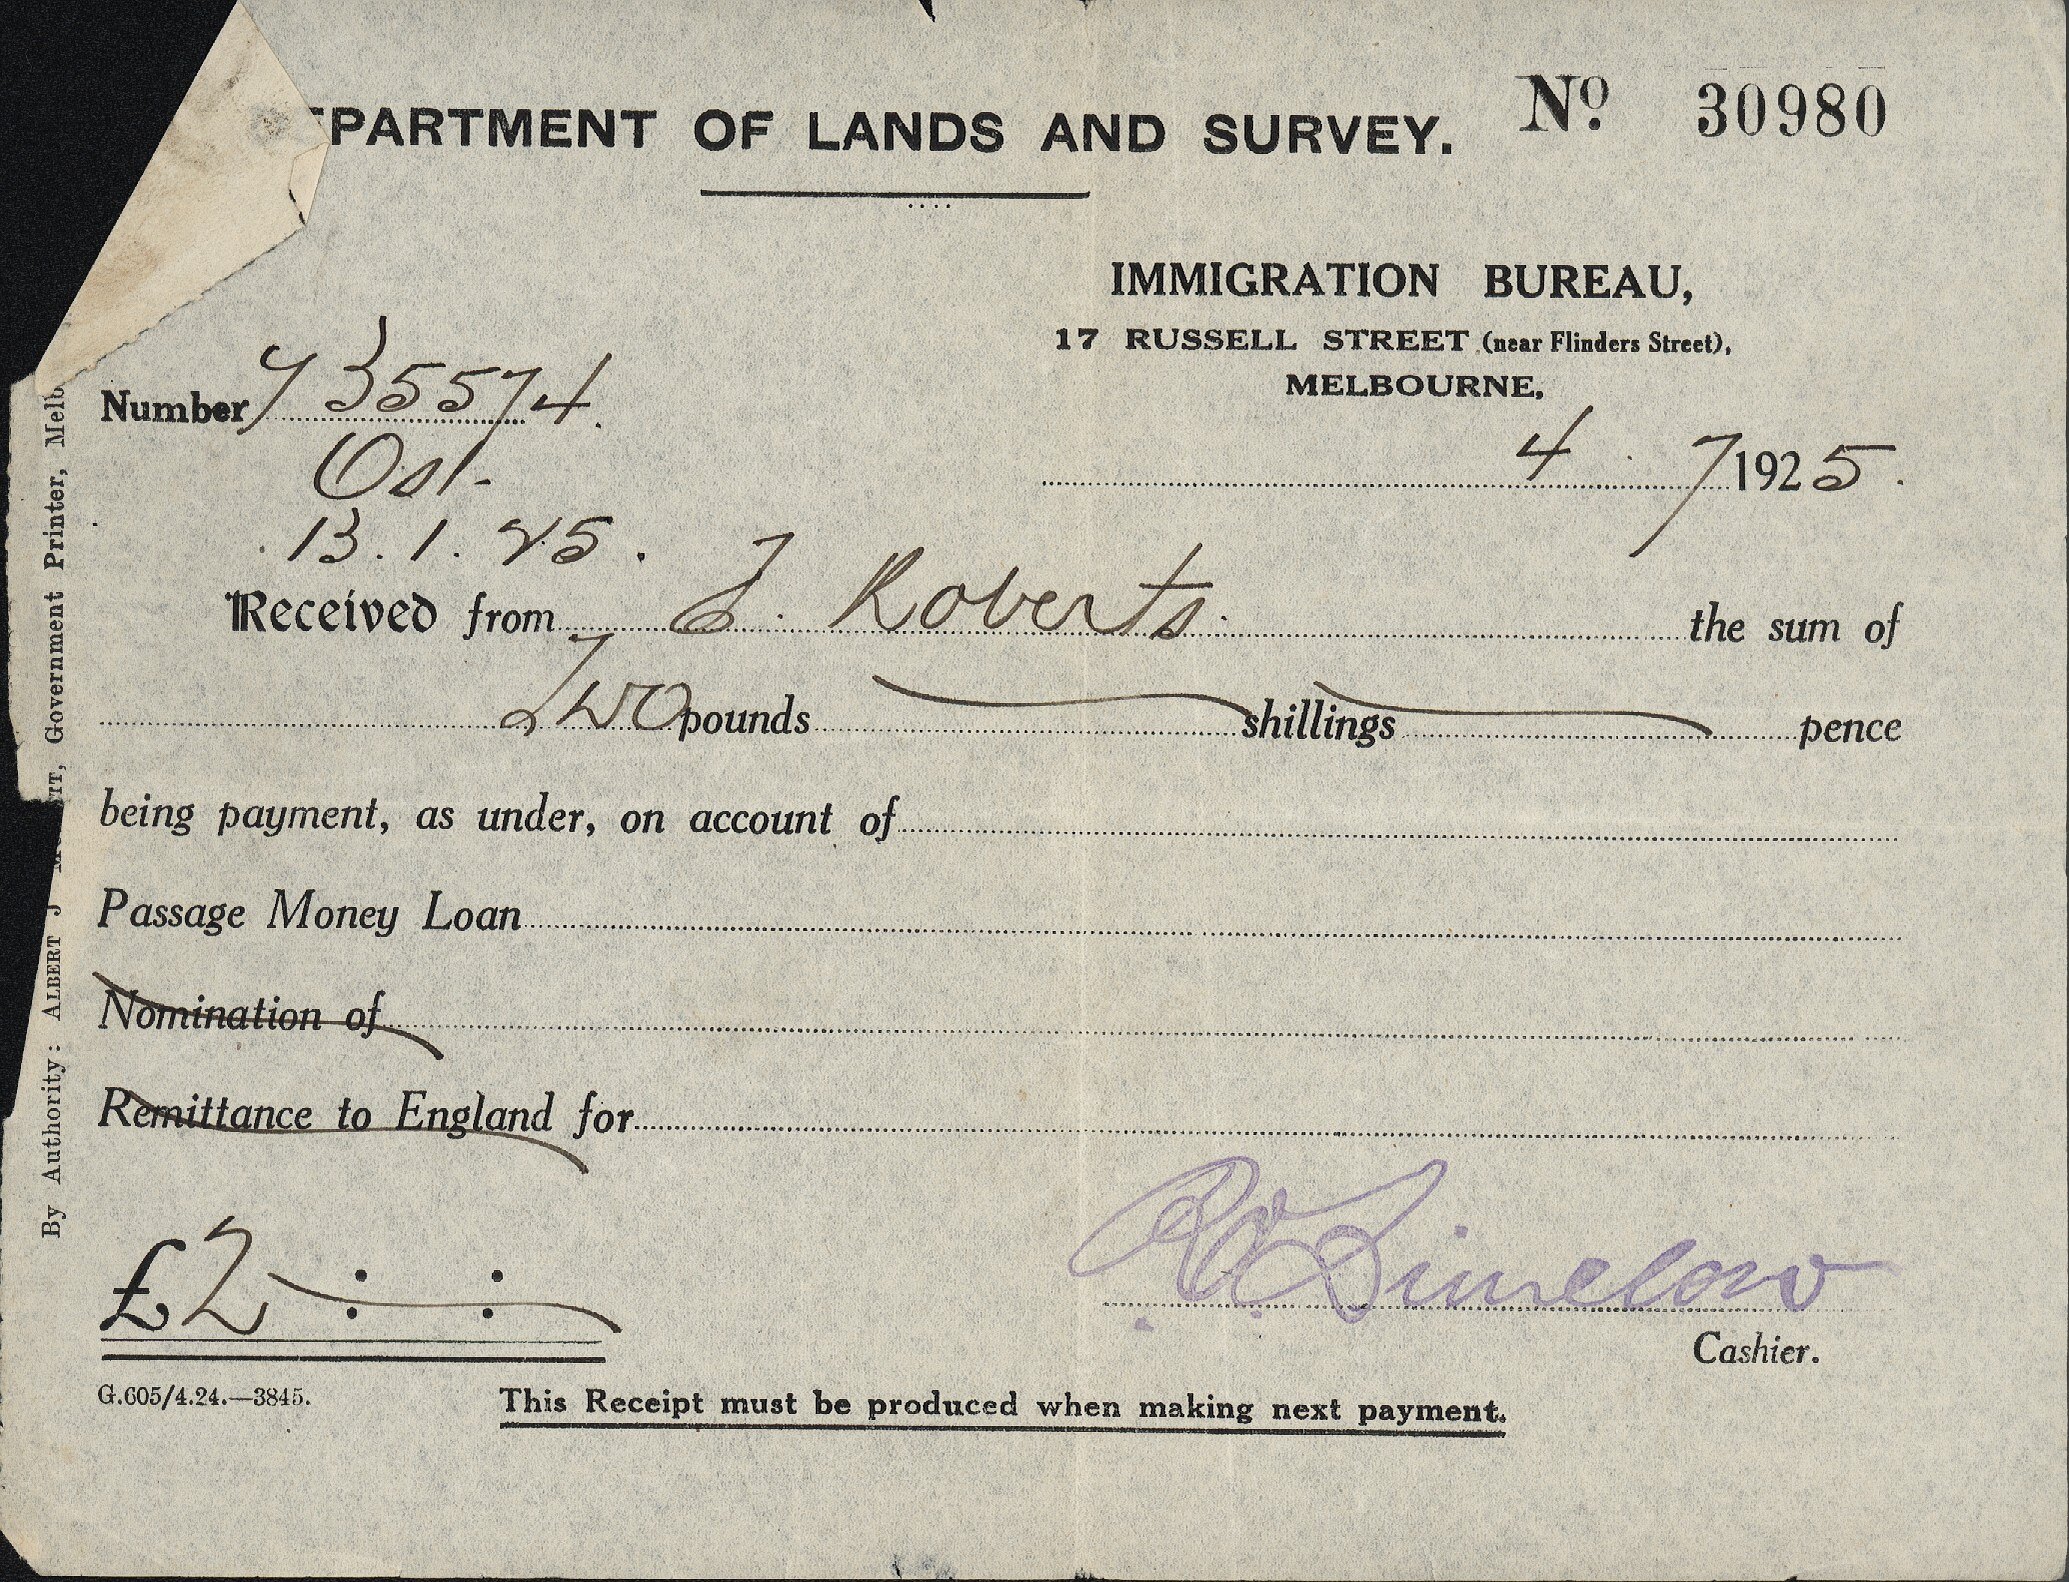 EPARTMENT OF LANDS AND SURVEY. No. 30980
IMMIGRATION BUREAU,
17 RUSSELL STREET (near Flinders Street),
MELBOURNE,
Number 735574.
4 7 1925.
13.1.25.
Received from T. Roberts. the sum of
Two pounds shillings pence
being payment, as under, on account of
Passage Money Loan
Nomination of
Remittance to England for
£2 : :
Cashier.
G.605/4.24.—3845. This Receipt must be produced when making next payment.
By Authority: ALBERT J Government Printer, Melb